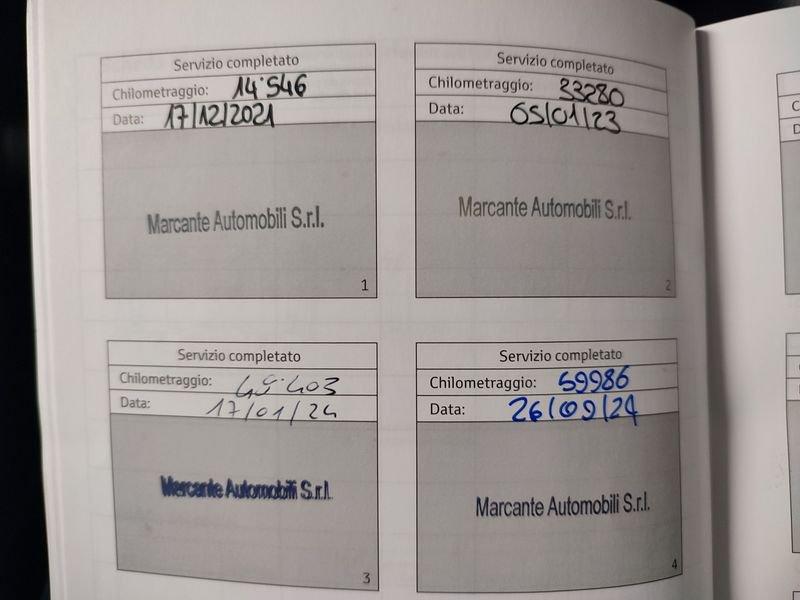 Servizio completato
Chilometraggio: 14'546
Data: 17/12/2021
Marcante Automobili S.r.l.
1
Servizio completato
Chilometraggio: 33280
Data: 05/01/23
Marcante Automobili S.r.l.
2
Servizio completato
Chilometraggio: 49'403
Data: 17/01/24
Marcante Automobili S.r.l.
3
Servizio completato
Chilometraggio: 59986
Data: 26/09/24
Marcante Automobili S.r.l.
4